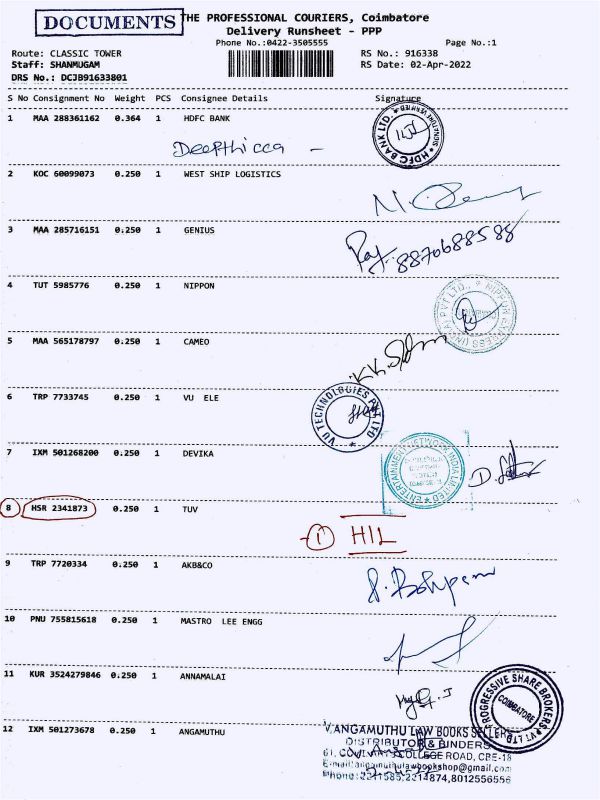 DOCUMENTS
THE PROFESSIONAL COURIERS, Coimbatore
Delivery Runsheet - PPP
Phone No.:0422-3505555
Page No.:1
Route: CLASSIC TOWER
RS No.: 916338
Staff: SHANMUGAM
RS Date: 02-Apr-2022
DRS No.: DCJB91633801
S No Consignment No Weight PCS Consignee Details Signature
1 MAA 288361162 0.364 1 HDFC BANK
HDFC BANK LTD.
2 KOC 60099073 0.250 1 WEST SHIP LOGISTICS
3 MAA 285716151 0.250 1 GENIUS
8870688588
4 TUT 5985776 0.250 1 NIPPON
5 MAA 565178797 0.250 1 CAMEO
6 TRP 7733745 0.250 1 VU ELE
VU TECHNOLOGIES PVT LTD
7 IXM 501268200 0.250 1 DEVIKA
ENTERTAINMENT NETWORK INDIA LIMITED
8 HSR 2341873 0.250 1 TUV
1 HIL
9 TRP 7720334 0.250 1 AKB&CO
10 PNU 755815618 0.250 1 MASTRO LEE ENGG
11 KUR 3524279846 0.250 1 ANNAMALAI
PROGRESSIVE SHARE BROKERS PVT LTD
COIMBATORE
12 IXM 501273678 0.250 1 ANGAMUTHU
V.ANGAMUTHU LAW BOOKS SELLERS
DISTRIBUTOR & BINDERS
COLLEGE ROAD, CBE-18
E-mail:angamuthulawbookshop@gmail.com
Phone: 2214874,8012556556